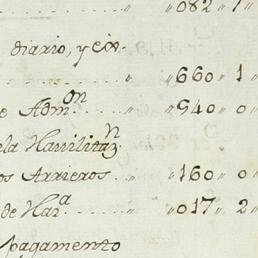 " 082 " 1 "
diario, y eix-
" 660 " 1 "
e Admon " 540 " 0 "
la Havilitazn
os Arrieros " 160 " 0 "
de Haza " 017 " 2 "
pagamento